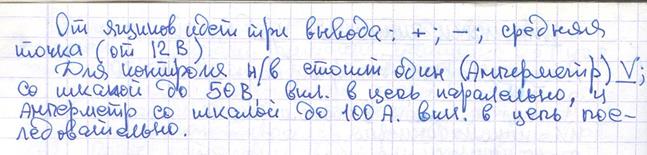 От ящиков идет три вывода: +; –; средняя
точка (от 12 В)
Для контроля н/в стоит один (Амперметр) V;
со шкалой до 50В, вкл. в цепь паралельно, и
Амперметр со шкалой до 100А. вкл. в цепь пос-
ледовательно.